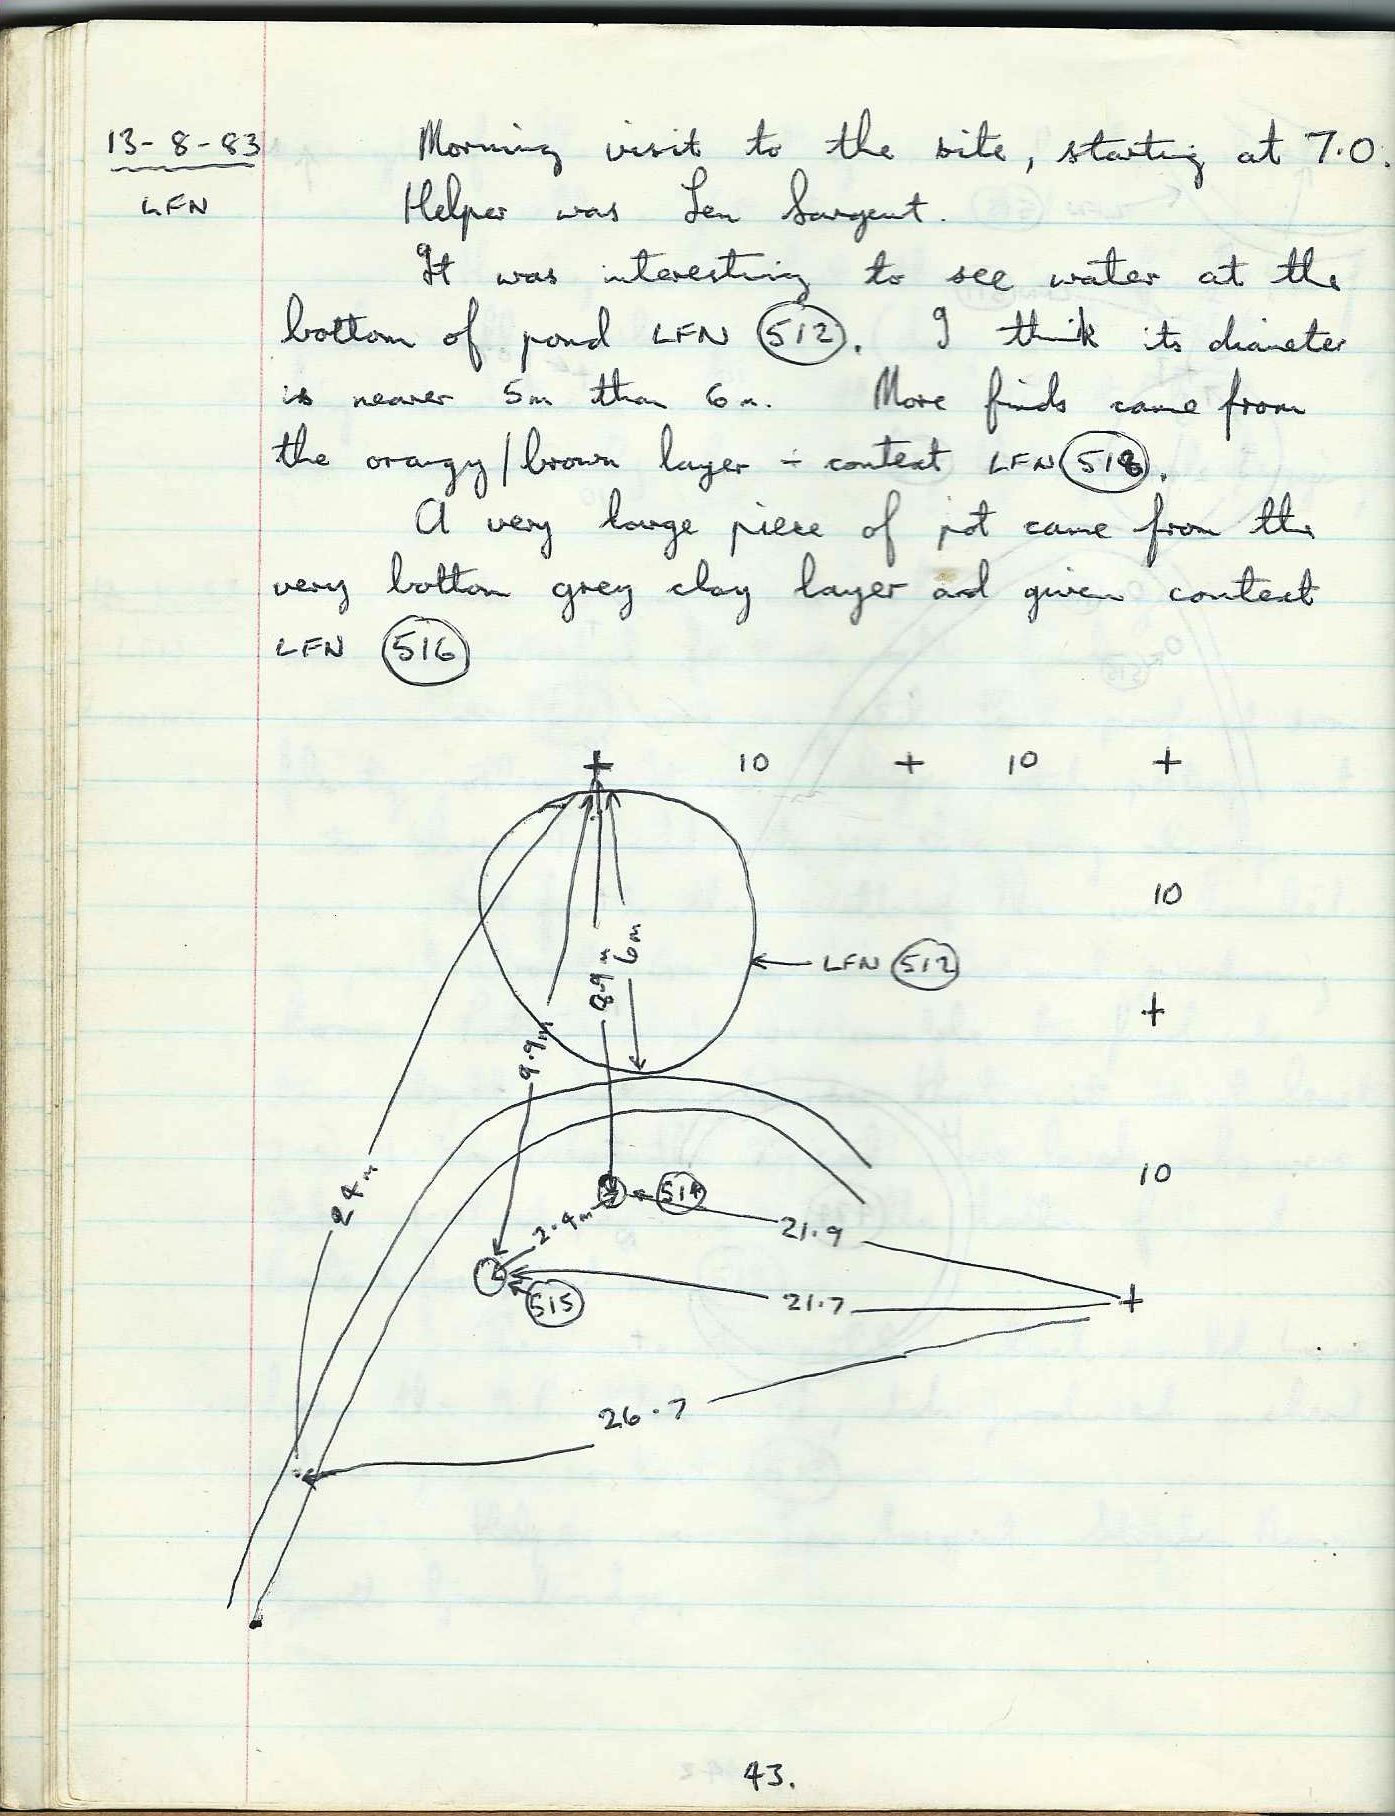 13-8-83 Morning visit to the site, starting at 7.0.
LFN Helper was Len Sargent.
It was interesting to see water at the
bottom of pond LFN 512. I think its diameter
is nearer 5m than 6m. More finds came from
the orangy/brown layer - context LFN 518.
A very large piece of pot came from the
very bottom grey clay layer and given context
LFN 516
+ 10 + 10 +
10
6m
8.9m
LFN 512
+
9.9m
10
24m
514
2.4m
21.9
515
21.7
+
26.7
43.